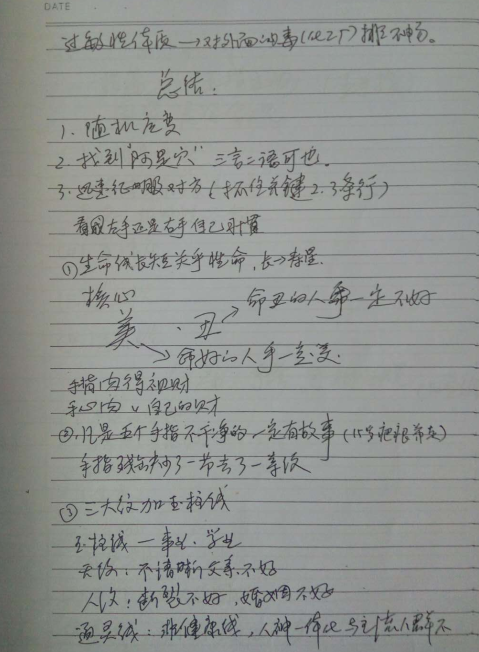 DATE
过敏性体质→对外面的毒(化工厂)排泄不畅。
总结：
1. 随机应变
2. 找到"阿是穴" 三言二语可也。
3. 迅速征服对方(抓住关键2.3条行)
看男左手还是右手自己财富
①生命线长短关乎性命,长→寿星.
核心
美·丑→命丑的人手一定不好
→命好的人手一定美.
手指肉得祖财
手心肉 〃自己的财
②凡是五个手指不干净的,一定有故事(
手指残缺少了一节去了一等级
③三大纹加玉柱线
玉柱线—事业.学业
天纹：不清晰父亲不好
人纹：断裂不好,婚姻不好
通灵线：非健康线,人神一体化与主流人群不